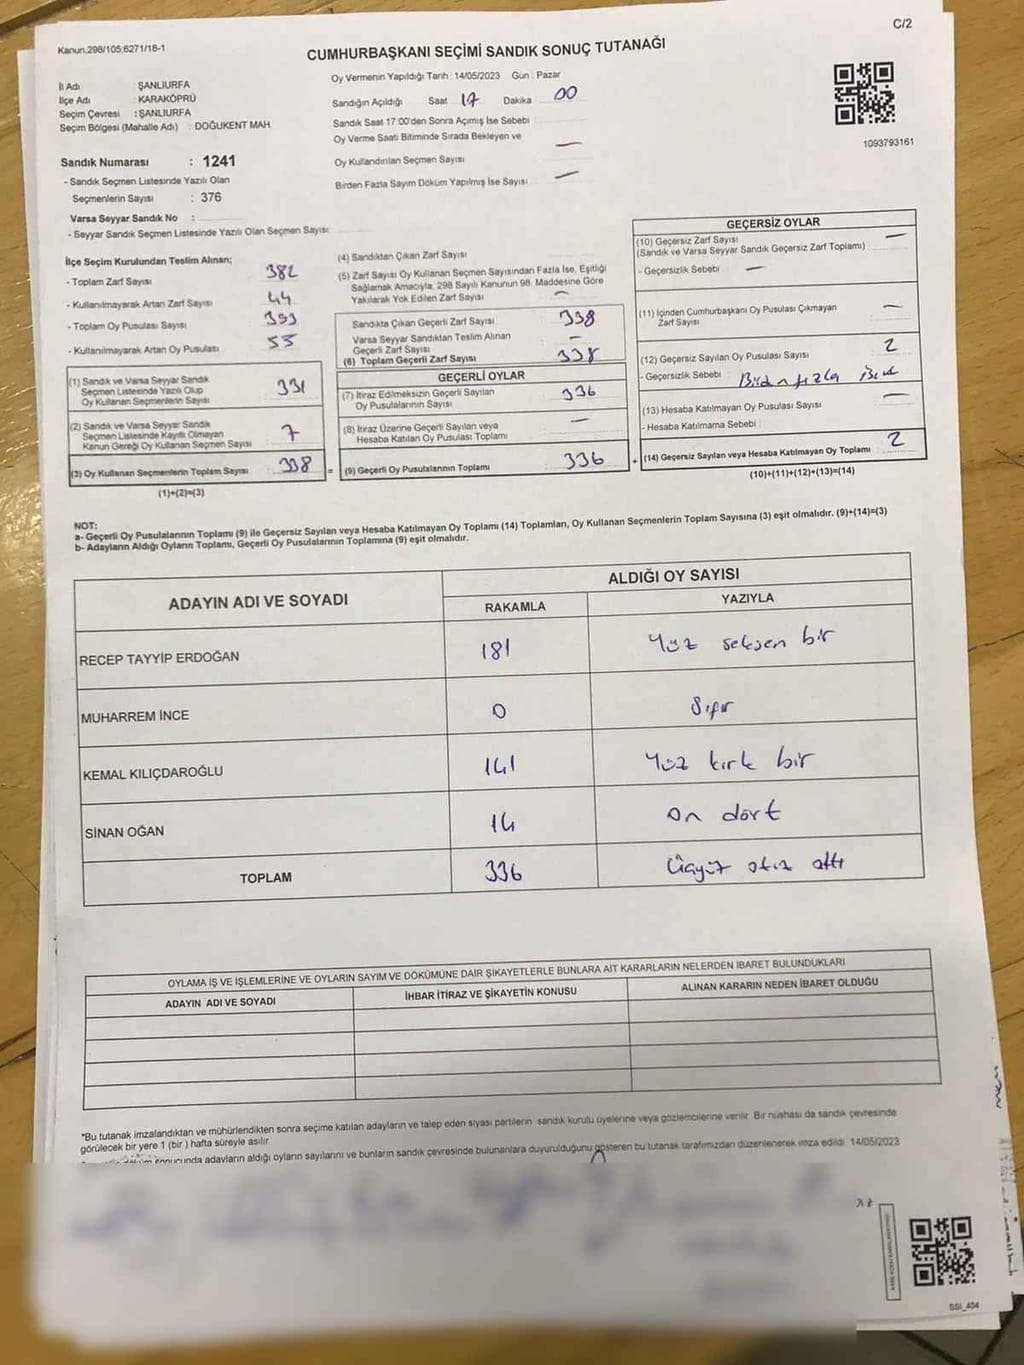 Kanun.298/105;6271/18-1
C/2
CUMHURBAŞKANI SEÇİMİ SANDIK SONUÇ TUTANAĞI
İl Adı : ŞANLIURFA
İlçe Adı : KARAKÖPRÜ
Seçim Çevresi : ŞANLIURFA
Seçim Bölgesi (Mahalle Adı) : DOĞUKENT MAH.
Oy Vermenin Yapıldığı Tarih : 14/05/2023 Gün : Pazar
Sandığın Açıldığı Saat 17 Dakika 00
Sandık Saat 17:00'den Sonra Açılmış İse Sebebi
Oy Verme Saati Bitiminde Sırada Bekleyen ve
Oy Kullandırılan Seçmen Sayısı : —
Birden Fazla Sayım Döküm Yapılmış İse Sayısı : —
1093793161
Sandık Numarası : 1241
- Sandık Seçmen Listesinde Yazılı Olan
Seçmenlerin Sayısı : 376
Varsa Seyyar Sandık No :
- Seyyar Sandık Seçmen Listesinde Yazılı Olan Seçmen Sayısı:
İlçe Seçim Kurulundan Teslim Alınan;
- Toplam Zarf Sayısı : 382
- Kullanılmayarak Artan Zarf Sayısı : 44
- Toplam Oy Pusulası Sayısı : 393
- Kullanılmayarak Artan Oy Pusulası : 55
(1) Sandık ve Varsa Seyyar Sandık
Seçmen Listesinde Yazılı Olup
Oy Kullanan Seçmenlerin Sayısı : 331
(2) Sandık ve Varsa Seyyar Sandık
Seçmen Listesinde Kayıtlı Olmayan
Kanun Gereği Oy Kullanan Seçmen Sayısı : 7
(3) Oy Kullanan Seçmenlerin Toplam Sayısı : 338 =
(1)+(2)=(3)
(4) Sandıktan Çıkan Zarf Sayısı :
(5) Zarf Sayısı Oy Kullanan Seçmen Sayısından Fazla İse, Eşitliği
Sağlamak Amacıyla, 298 Sayılı Kanunun 98. Maddesine Göre
Yakılarak Yok Edilen Zarf Sayısı : —
Sandıkta Çıkan Geçerli Zarf Sayısı : 338
Varsa Seyyar Sandıktan Teslim Alınan
Geçerli Zarf Sayısı : —
(6) Toplam Geçerli Zarf Sayısı : 338
GEÇERLİ OYLAR
(7) İtiraz Edilmeksizin Geçerli Sayılan
Oy Pusulalarının Sayısı : 336
(8) İtiraz Üzerine Geçerli Sayılan veya
Hesaba Katılan Oy Pusulası Toplamı : —
(9) Geçerli Oy Pusulalarının Toplamı : 336 +
GEÇERSİZ OYLAR
(10) Geçersiz Zarf Sayısı : —
(Sandık ve Varsa Seyyar Sandık Geçersiz Zarf Toplamı)
- Geçersizlik Sebebi : —
(11) İçinden Cumhurbaşkanı Oy Pusulası Çıkmayan
Zarf Sayısı : —
(12) Geçersiz Sayılan Oy Pusulası Sayısı : 2
- Geçersizlik Sebebi :
(13) Hesaba Katılmayan Oy Pusulası Sayısı : —
- Hesaba Katılmama Sebebi :
(14) Geçersiz Sayılan veya Hesaba Katılmayan Oy Toplamı : 2
(10)+(11)+(12)+(13)=(14)
NOT:
a- Geçerli Oy Pusulalarının Toplamı (9) ile Geçersiz Sayılan veya Hesaba Katılmayan Oy Toplamı (14) Toplamları, Oy Kullanan Seçmenlerin Toplam Sayısına (3) eşit olmalıdır. (9)+(14)=(3)
b- Adayların Aldığı Oyların Toplamı, Geçerli Oy Pusulalarının Toplamına (9) eşit olmalıdır.
ADAYIN ADI VE SOYADI
ALDIĞI OY SAYISI
RAKAMLA YAZIYLA
RECEP TAYYİP ERDOĞAN 181 Yüz seksen bir
MUHARREM İNCE 0 Sıfır
KEMAL KILIÇDAROĞLU 141 Yüz kırk bir
SİNAN OĞAN 14 on dört
TOPLAM 336 Üçyüz otuz altı
OYLAMA İŞ VE İŞLEMLERİNE VE OYLARIN SAYIM VE DÖKÜMÜNE DAİR ŞİKAYETLERLE BUNLARA AİT KARARLARIN NELERDEN İBARET BULUNDUKLARI
ADAYIN ADI VE SOYADI İHBAR İTİRAZ VE ŞİKAYETİN KONUSU ALINAN KARARIN NEDEN İBARET OLDUĞU
*Bu tutanak imzalandıktan ve mühürlendikten sonra seçime katılan adayların ve talep eden siyasi partilerin sandık kurulu üyelerine veya gözlemcilerine verilir. Bir nüshası da sandık çevresinde
görülecek bir yere 1 (bir ) hafta süreyle asılır.
sonucunda adayların aldığı oyların sayılarını ve bunların sandık çevresinde bulunanlara duyurulduğunu gösteren bu tutanak tarafımızdan düzenlenerek imza edildi. 14/05/2023
SSI_404